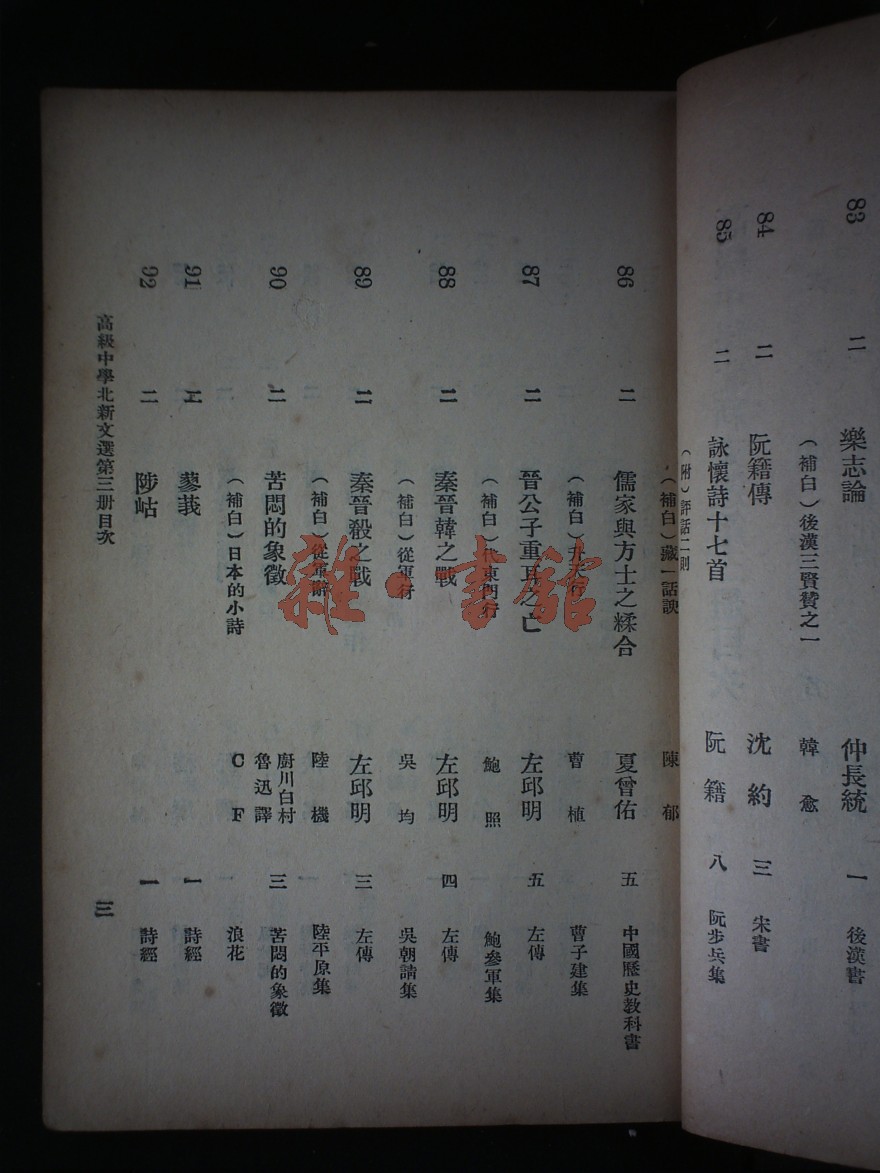 83 二 樂志論 仲長統 一 後漢書
（補白）後漢三賢贊之一 韓愈
84 二 阮籍傳 沈約 三 宋書
85 二 詠懷詩十七首 阮籍 八 阮步兵集
（附）詩話二則
（補白）藏一話腴 陳郁
86 二 儒家與方士之糅合 夏曾佑 五 中國歷史教科書
（補白）升天行 曹植 曹子建集
87 二 晉公子重耳之亡 左邱明 五 左傳
（補白）代東門行 鮑照 鮑參軍集
88 二 秦晉韓之戰 左邱明 四 左傳
（補白）從軍行 吳均 吳朝請集
89 二 秦晉殽之戰 左邱明 三 左傳
（補白）從軍 陸機 陸平原集
90 二 苦悶的象徵 廚川白村 魯迅譯 三 苦悶的象徵
（補白）日本的小詩 C F 浪花
91 二 蓼莪 一 詩經
92 二 陟岵 一 詩經
高級中學北新文選第三册目次 三
雜·書館